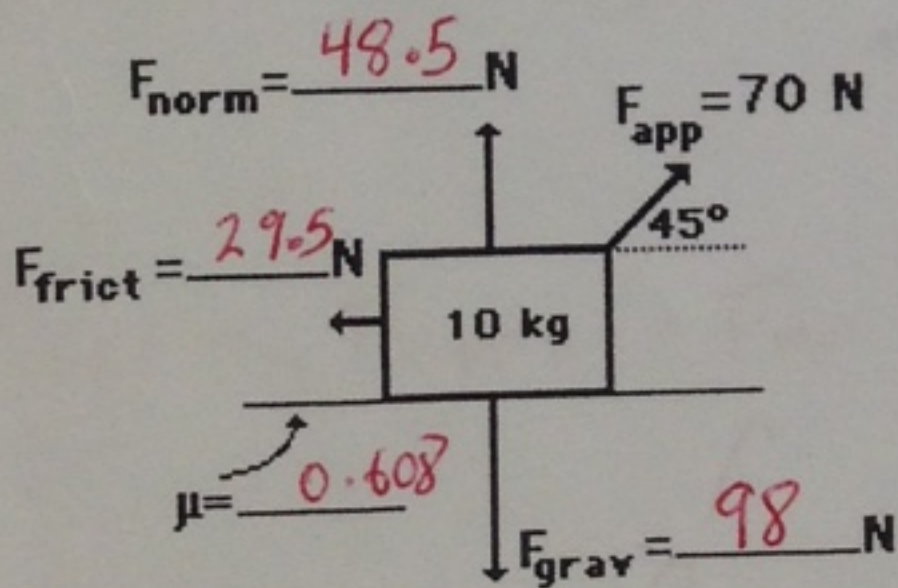 F_norm = 48.5 N
F_app = 70 N
45°
F_frict = 29.5 N
10 kg
μ = 0.608
F_grav = 98 N